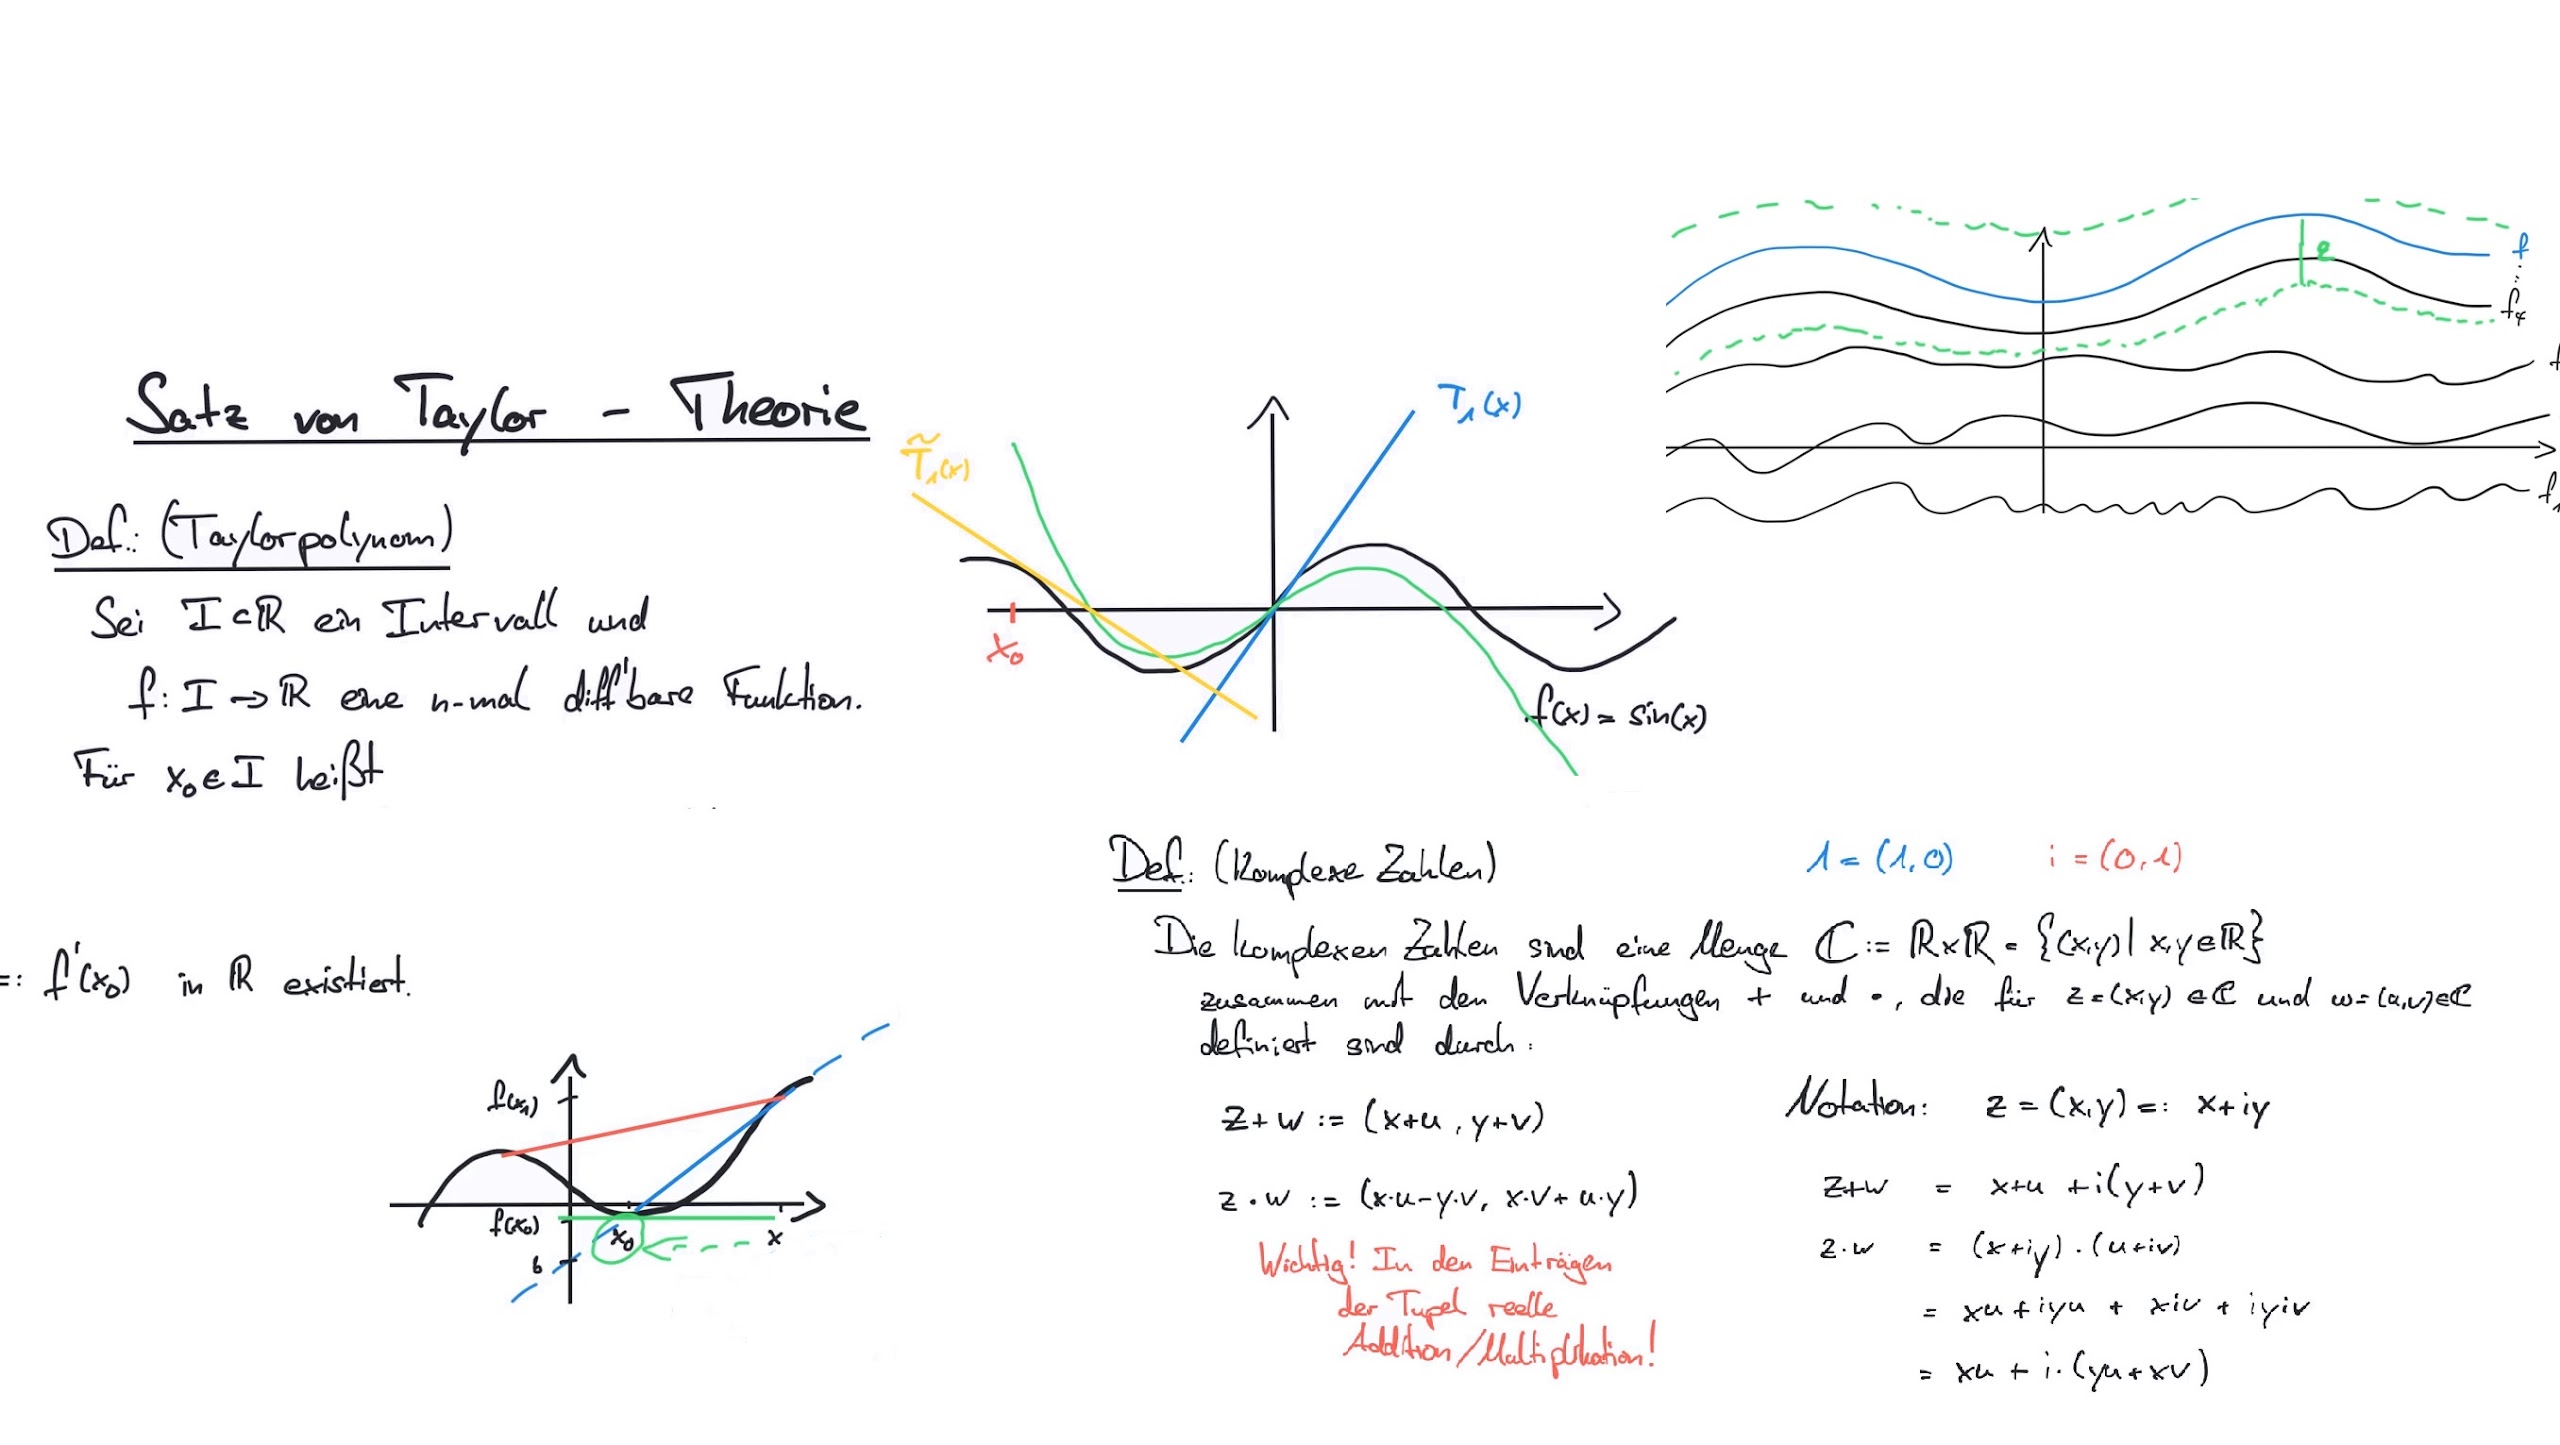 Satz von Taylor - Theorie
Def.: (Taylorpolynom)
Sei I ⊂ ℝ ein Intervall und
f: I → ℝ eine n-mal diff'bare Funktion.
Für x₀ ∈ I heißt
T̃₁(x)
T₁(x)
x₀
f(x) = sin(x)
f
⋮
f₄
f₁
=: f'(x₀) in ℝ existiert.
f(x₁)
f(x₀)
x₀
x
b
Def.: (Komplexe Zahlen)
1 = (1,0) i = (0,1)
Die komplexen Zahlen sind eine Menge ℂ := ℝ×ℝ = {(x,y) | x,y ∈ ℝ}
zusammen mit den Verknüpfungen + und •, die für z=(x,y) ∈ ℂ und w=(u,v) ∈ ℂ
definiert sind durch:
z+w := (x+u, y+v)
z·w := (x·u-y·v, x·v+u·y)
Wichtig! In den Einträgen
der Tupel reelle
Addition/Multiplikation!
Notation: z = (x,y) =: x+iy
z+w = x+u +i(y+v)
z·w = (x+iy)·(u+iv)
= xu+iyu + xiv + iyiv
= xu + i·(yu+xv)